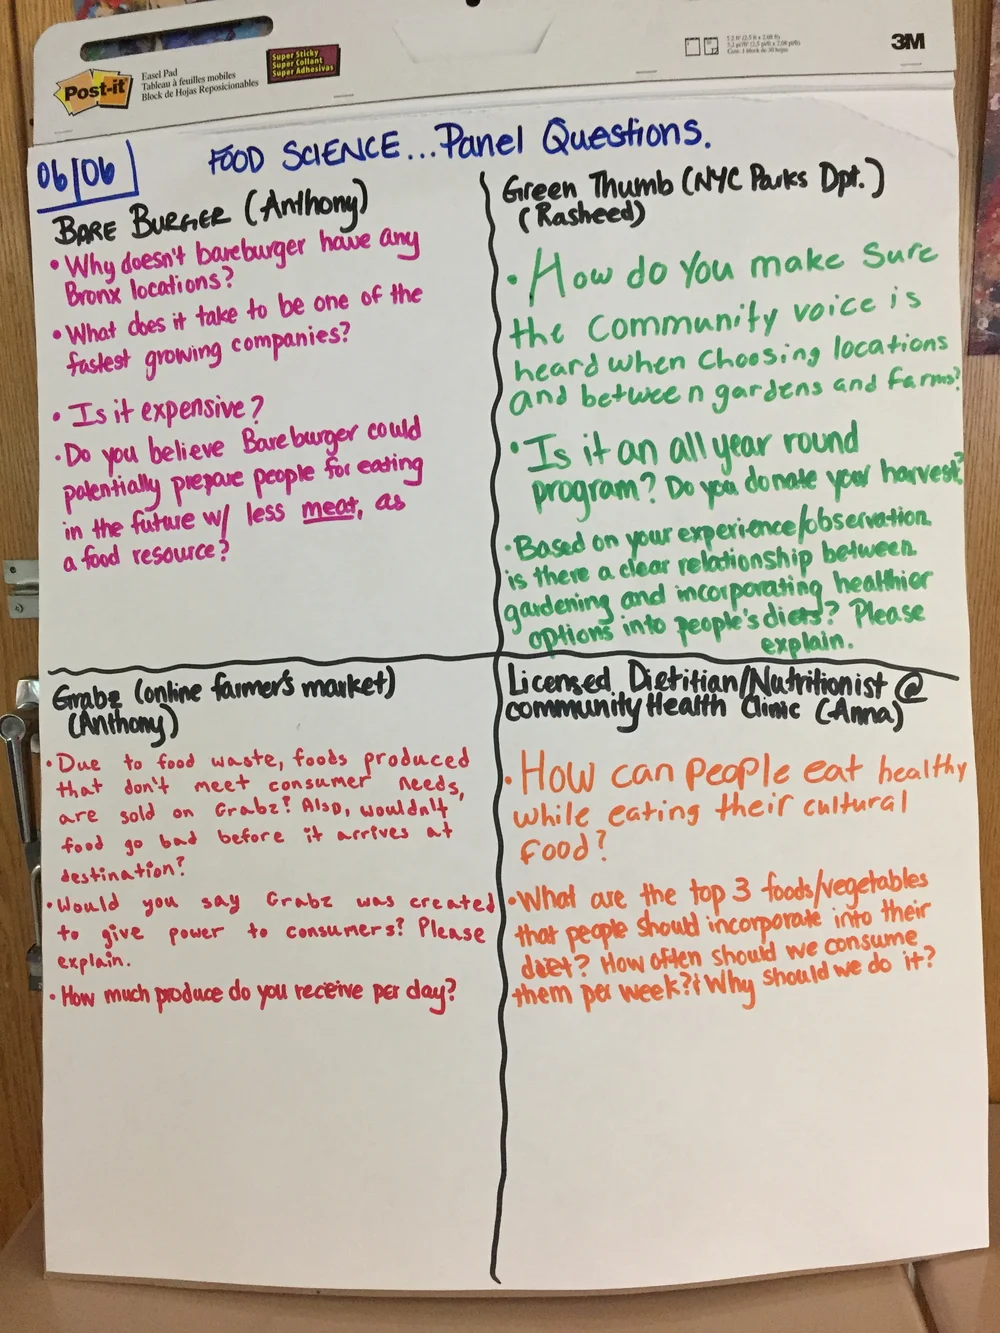 Post-it
Easel Pad
Tableau à feuilles mobiles
Block de Hojas Reposicionables
Super Sticky
Super Collant
Super Adhesivas
3M
06/06
FOOD SCIENCE...Panel Questions.
BARE BURGER (Anthony)
• Why doesn't bareburger have any
Bronx locations?
• What does it take to be one of the
fastest growing companies?
• Is it expensive?
• Do you believe Bareburger could
potentially prepare people for eating
in the future w/ less meat, as
a food resource?
Green Thumb (NYC Parks Dpt.)
(Rasheed)
• How do you make sure
the community voice is
heard when choosing locations
and between gardens and farms?
• Is it an all year round
program? Do you donate your harvest?
• Based on your experience/observation
is there a clear relationship between
gardening and incorporating healthier
options into people's diets? Please
explain.
Grabz (online farmer's market)
(Anthony)
• Due to food waste, foods produced
that don't meet consumer needs,
are sold on Grabz? Also, wouldn't
food go bad before it arrives at
destination?
• Would you say Grabz was created
to give power to consumers? Please
explain.
• How much produce do you receive per day?
Licensed Dietitian/Nutritionist @
community Health Clinic (Anna)
• How can people eat healthy
while eating their cultural
food?
• What are the top 3 foods/vegetables
that people should incorporate into their
diet? How often should we consume
them per week? & Why should we do it?